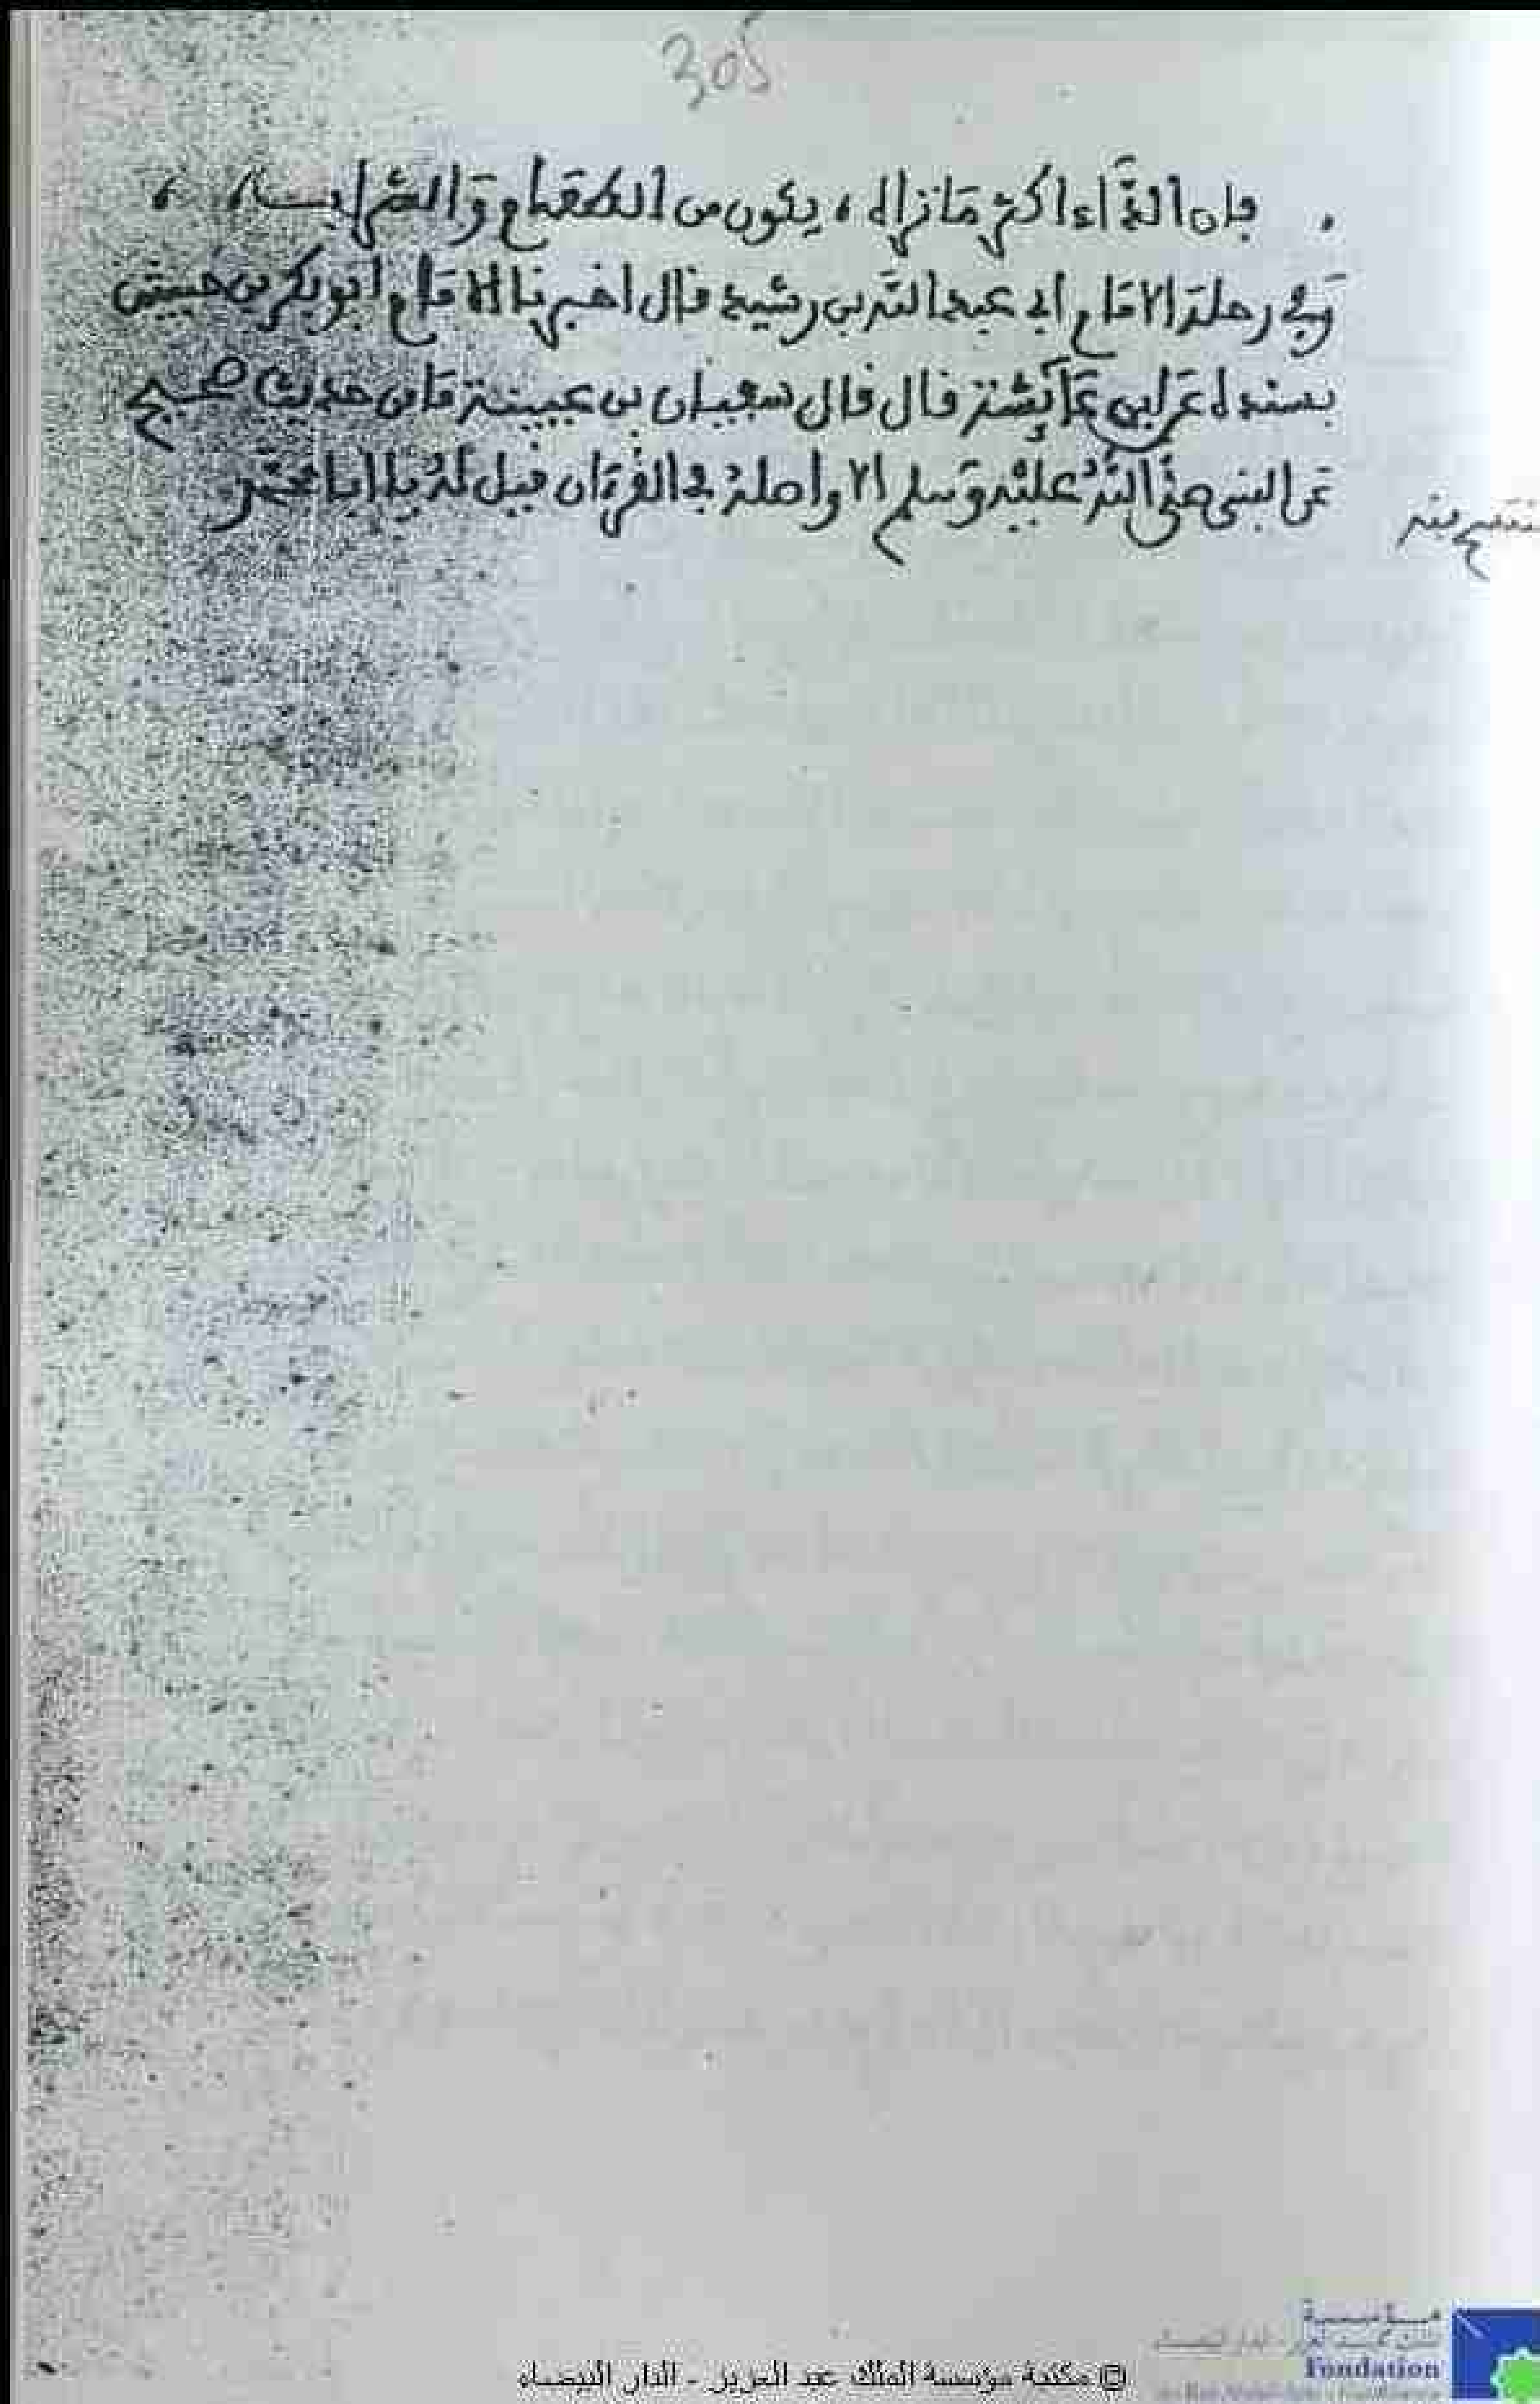 305
فإن الداء اكثر مَا تراه ، يكون من الطعَام وَالشراب ،
وَفي رحلة الامَام أبي عبد الله بن رشيد قال اخبرنا الامَام ابو بكر بن حبيش
بسنده عَن ابن عَائشة قال قال سفيان بن عيينة مَا من حديث صحيح
عَن النبي صَلى اللهُ عليْه وَسلم الا واصلهُ في القرءَان فقيل لهُ يا ابا محمد
© مكتبة مؤسسة الملك عبد العزيز - الدار البيضاء
مؤسسة
Fondation